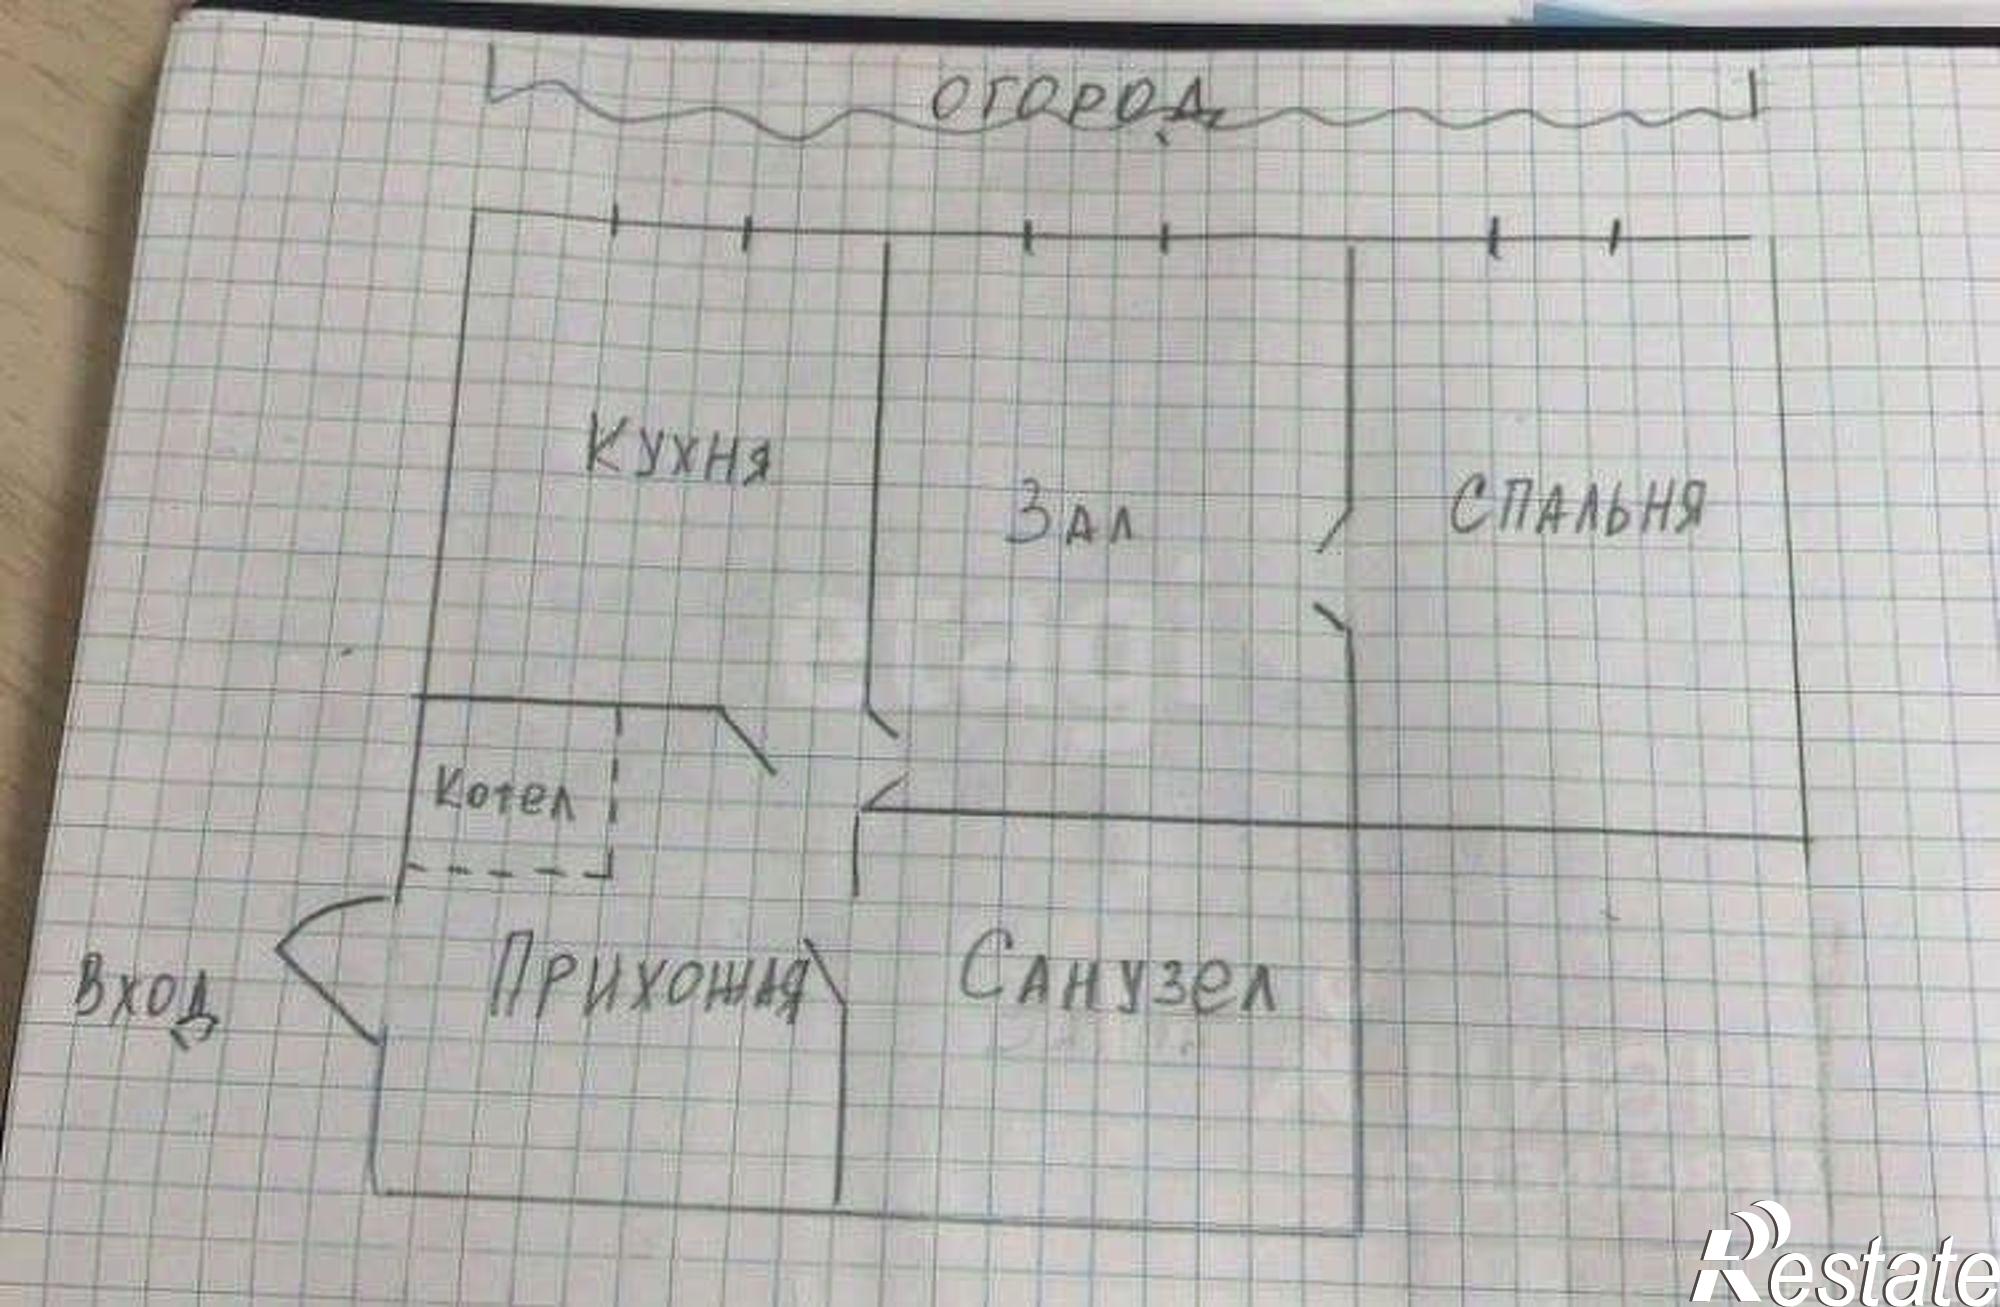 ОГОРОД
КУХНЯ
ЗАЛ
СПАЛЬНЯ
Котел
ВХОД
ПРИХОЖАЯ
САНУЗЕЛ
etagi
Restate